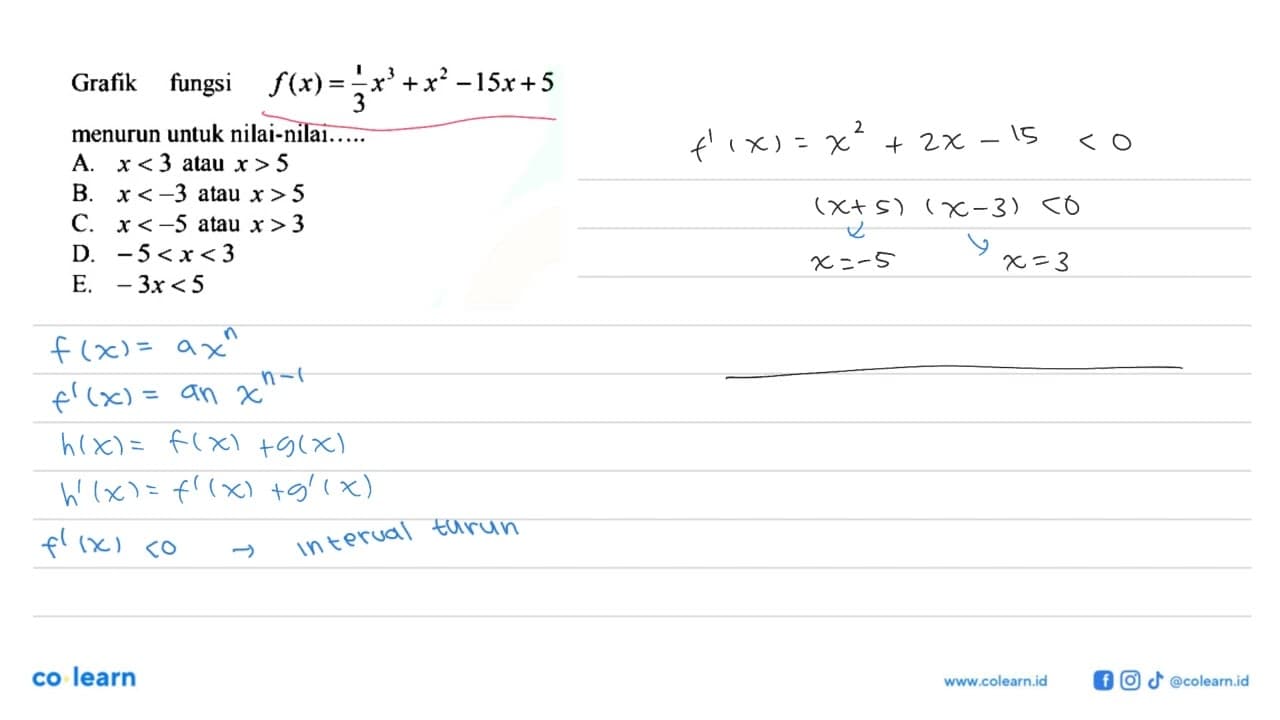 Grafik fungsi f(x) = 1/3 x³ + x² − 15x + 5
menurun untuk nilai-nilai.....
A. x < 3 atau x > 5
B. x < −3 atau x > 5
C. x < −5 atau x > 3
D. − 5 < x < 3
E. − 3x < 5
f(x) = ax^n
f'(x) = an x^{n-1}
h(x) = f(x) + g(x)
h'(x) = f'(x) + g'(x)
f'(x) < 0 → interval turun
f'(x) = x² + 2x − 15 < 0
(x+5) (x−3) < 0
x = −5 x = 3
co learn
www.colearn.id @colearn.id